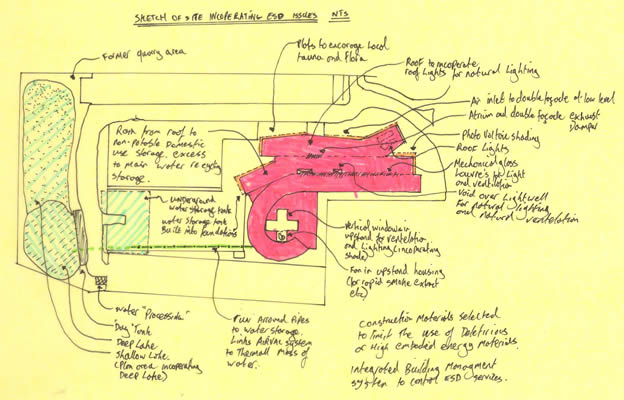 SKETCH OF SITE INCOPERATING ESD ISSUES NTS
Former quarry area
Plots to encorage Local
fauna and Flora
Roof to incoperate
roof Lights for natural Lighting
Air inlet to double façade at low level
Atrium and double façade exhaust
Damper
Photo Voltaic shading
Roof Lights
Mechanical glass
Louvre's for Light
and ventilation
Void over Lightwell
For natural lighting
and natural ventelation
from roof to
non-potable Domestic
use storage. excess
to main water recycling
storage.
underground
water storage tank
water storage tank
Built into foundations
Vertical windows in
upstand for ventelation
and Lighting (incoperating
shade)
Fan in upstand housing
(for rapid smoke extract
etc)
water "Processing"
Day Tank
Deep Lake
Shallow Lake
(Plan area incoperating
Deep Lake)
Pipes
to water storage.
Links system
to Thermall Mass of
water.
Construction Materials selected
to limit the use of Deleterious
or High embodied energy Materials.
Integrated Building Managment
system to control ESD services.